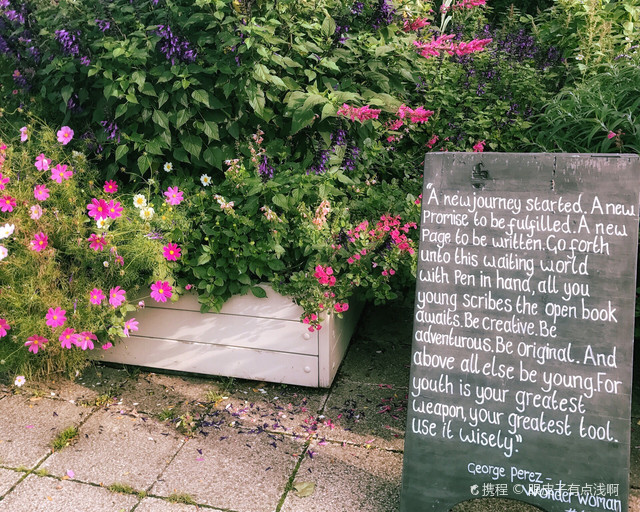 "A new journey started. A new
Promise to be fulfilled. A new
Page to be written. Go forth
unto this waiting world
with Pen in hand, all you
young scribes the open book
awaits. Be creative. Be
adventurous. Be Original. And
above all else be young. For
youth is your greatest
weapon, your greatest tool.
Use it wisely."
George Perez -
Wonder Woman
携程 © 眼底子有点浅啊